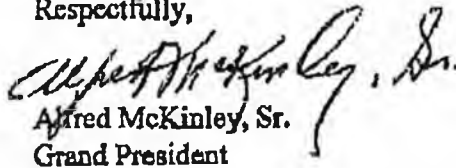 Respectfully,
Alfred McKinley, Sr.
Alfred McKinley, Sr.
Grand President